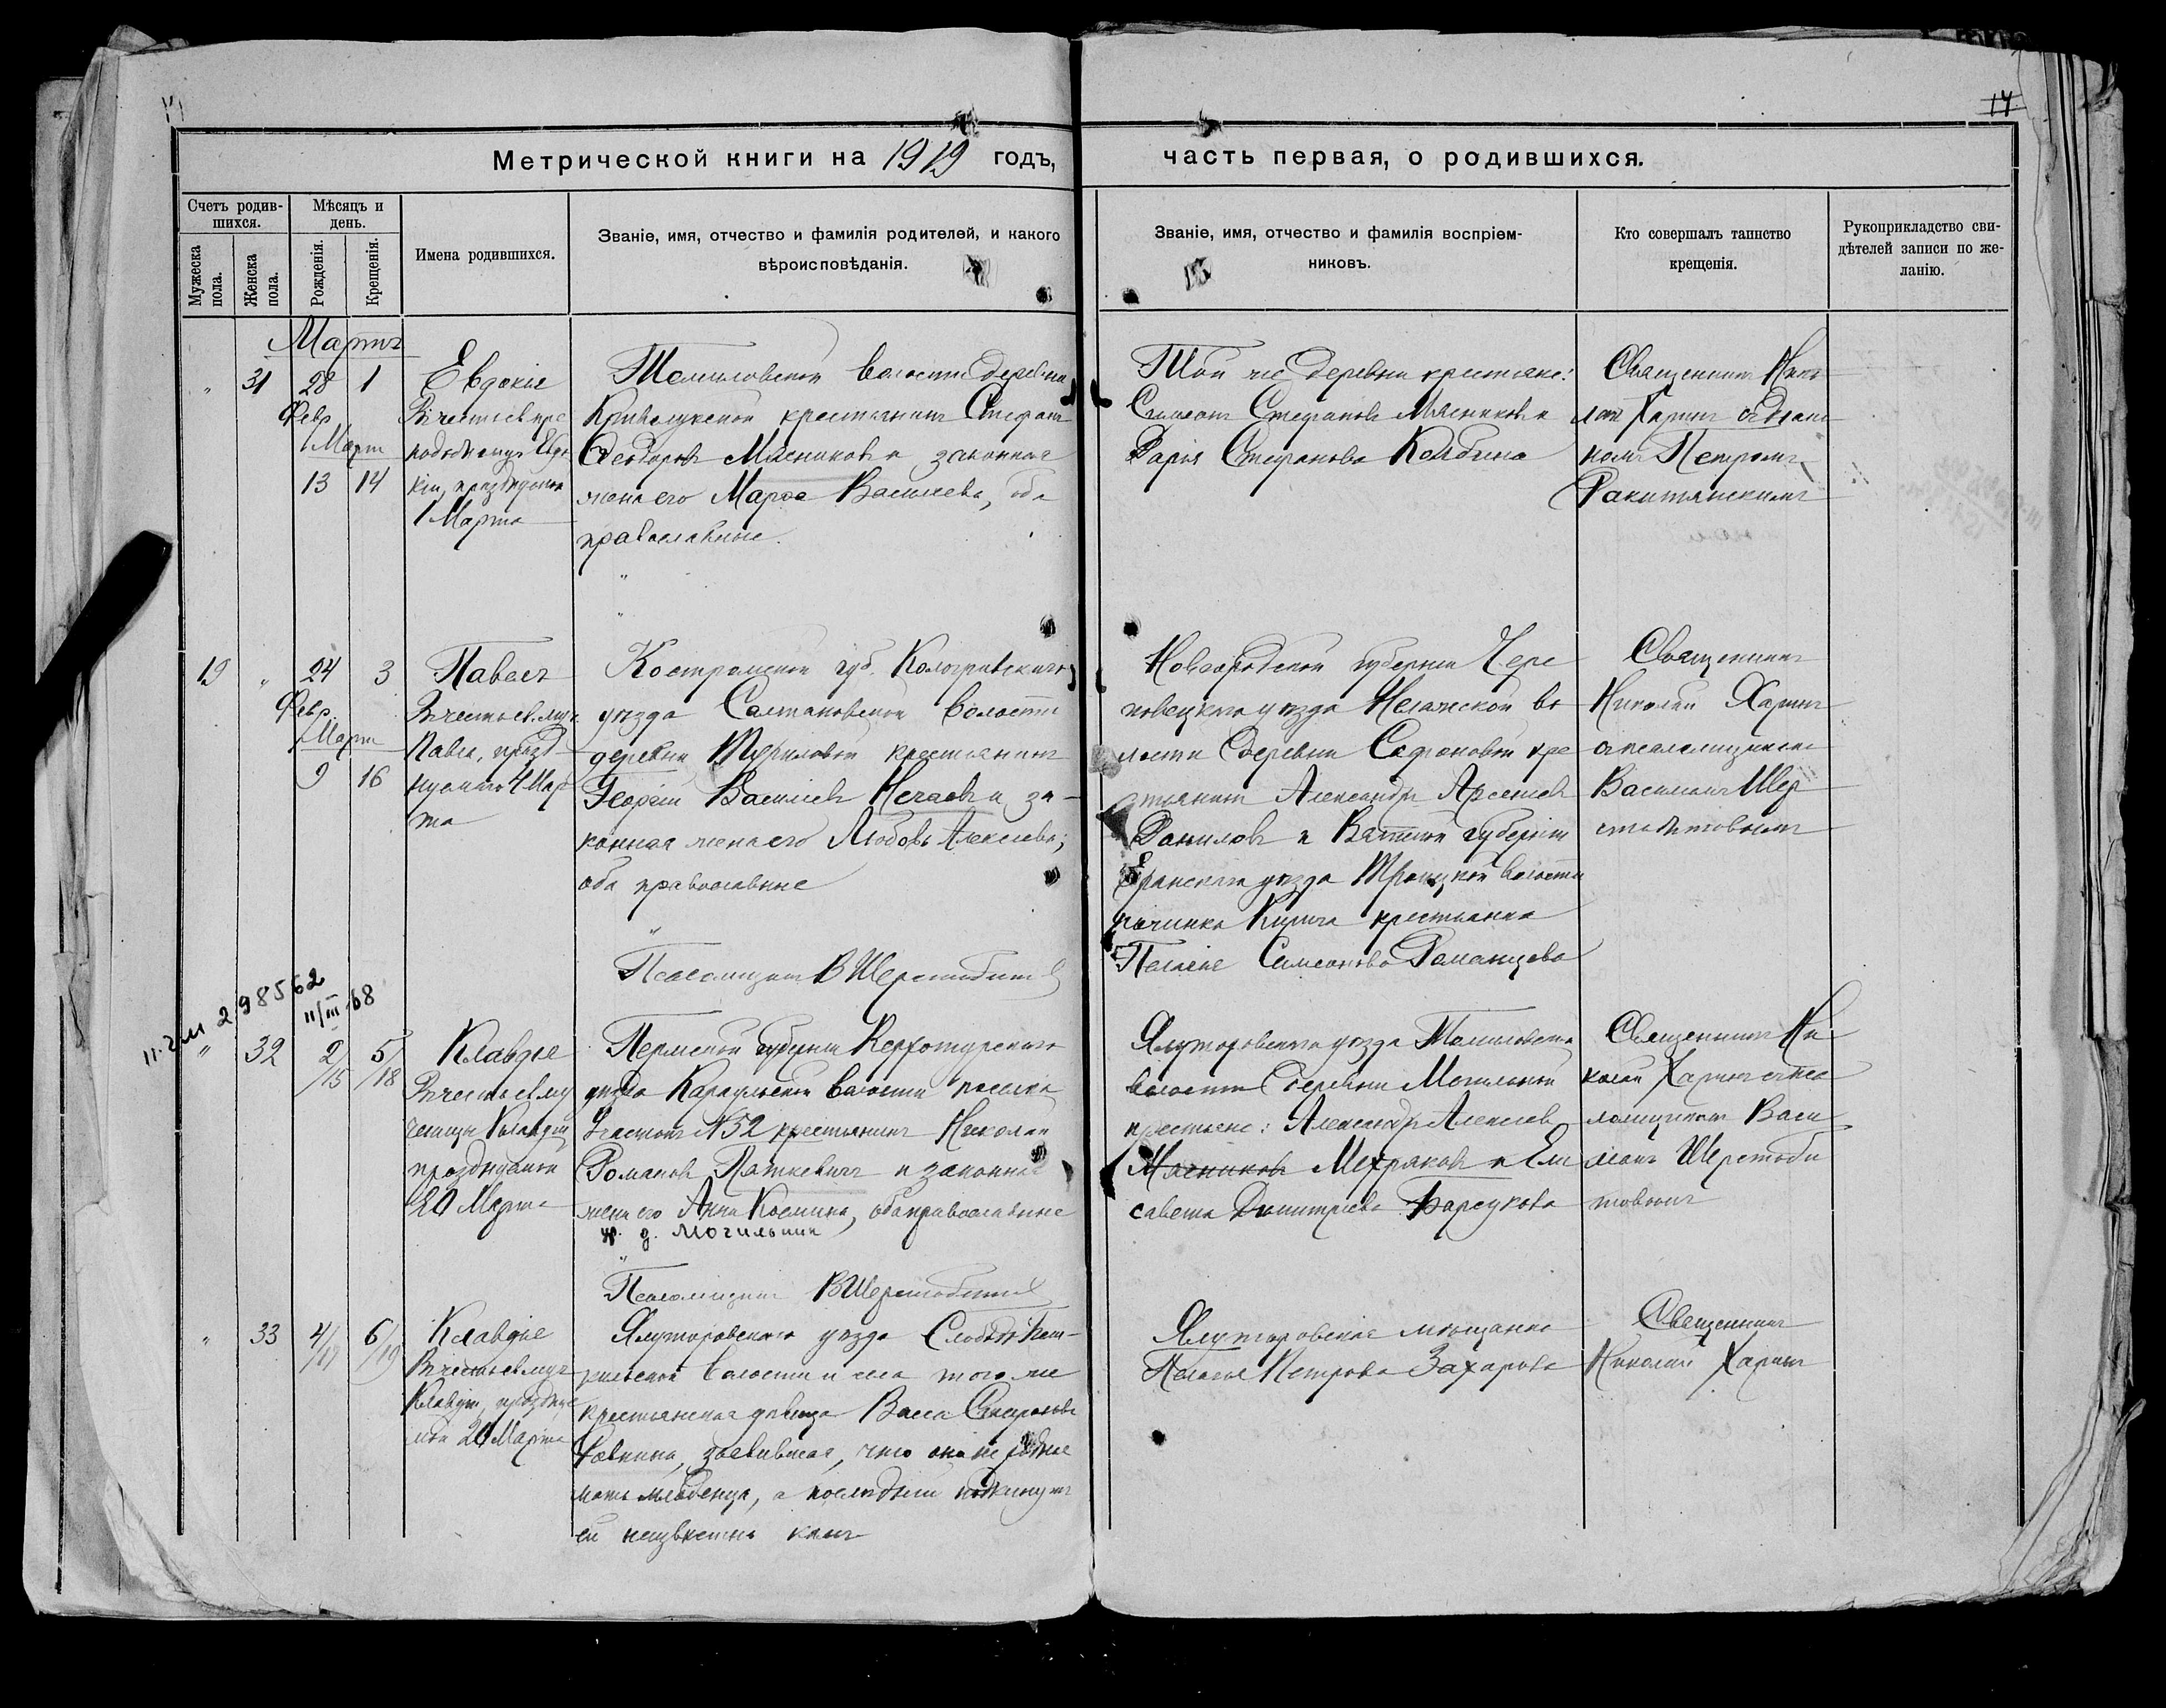 14
Метрической книги на 1919 годъ,
часть первая, о родившихся.
Счетъ родив-
шихся.
Мужеска
пола.
Женска
пола.
Мѣсяцъ и
день.
Рожденія.
Крещенія.
Имена родившихся.
Званіе, имя, отчество и фамилія родителей, и какого
вѣроисповѣданія.
Званіе, имя, отчество и фамилія воспріем-
никовъ.
Кто совершалъ таинство
крещенія.
Рукоприкладство сви-
дѣтелей записи по же-
ланію.
Мартъ
" 31 28 1
Февр
Март
13 14
Евдокія
Въ честь св. пре
подобномуч. Евдо
кіи, празднуемой
1 Марта
Томиловской волости деревни
Криволукской крестьянинъ Стефанъ
Ѳеодоровъ Мясниковъ и законная
жена его Марѳа Васильева, оба
православные.
Той же деревни крестьяне:
Симеонъ Стефановъ Мясниковъ и
Дарія Стефанова Колбина
Священникъ Нико
лай Харинъ съ діако
номъ Петромъ
Ракитянскимъ
19 " 24 3
Февр.
Март
9 16
Павелъ
Въ честь св. муч.
Павла, празд
нуемаго 4 Мар
та
Костромской губ. Кологривскаго
уѣзда Салтановской волости
деревни крестьянинъ
Георгій Васильевъ Нечаевъ и за-
конная жена его Любовь Алексѣева;
оба православные
Псаломщикъ В Шерстобитовъ
Новгородской губерніи Чере
повецкаго уѣзда во
лости деревни Сафоновой кре
стьянинъ Александръ Арсеніевъ
Даниловъ и Вятской губерніи
Яранскаго уѣзда Троицкой волости
починка крестьянка
Пелагія Симеонова Романцова
Священникъ
Николай Харинъ
съ псаломщикомъ
Василіемъ Шер
стобитовымъ
н. 2 м 298562
11/III-68
" 32 2/15 5/18
Клавдія
Въ честь св. му
ченицы Клавдіи,
празднуемой
20 Марта
Пермской губерніи Верхотурскаго
уѣзда Караульской волости поселка
Участокъ №52 крестьянинъ Николай
Романовъ Пяткевичъ и законная
жена его Анна Космина, оба православные
пр. д. Могильная
Псаломщикъ В Шерстобитовъ
Ялуторовскаго уѣзда Томиловской
волости деревни Могильной
крестьяне: Александръ Алексѣевъ
Мясниковъ Мехряковъ и Ели
савета Димитріева Барсукова
Священникъ Ни
колай Харинъ съ пса
ломщикомъ Васи
ліемъ Шерстоби
товымъ
" 33 4/17 6/19
Клавдія
Въ честь св. муч.
Клавдіи, празднуе
мой 20 Марта
Ялуторовскаго уѣзда Слободо-Беш-
кильской волости и села того же
крестьянская дѣвица Васса Стефанова
заявившая, что она не родная
мать младенца, а послѣдній подкинутъ
ей неизвѣстно кѣмъ
Ялуторовская мѣщанка
Пелагія Петрова Захарова
Священникъ
Николай Харинъ